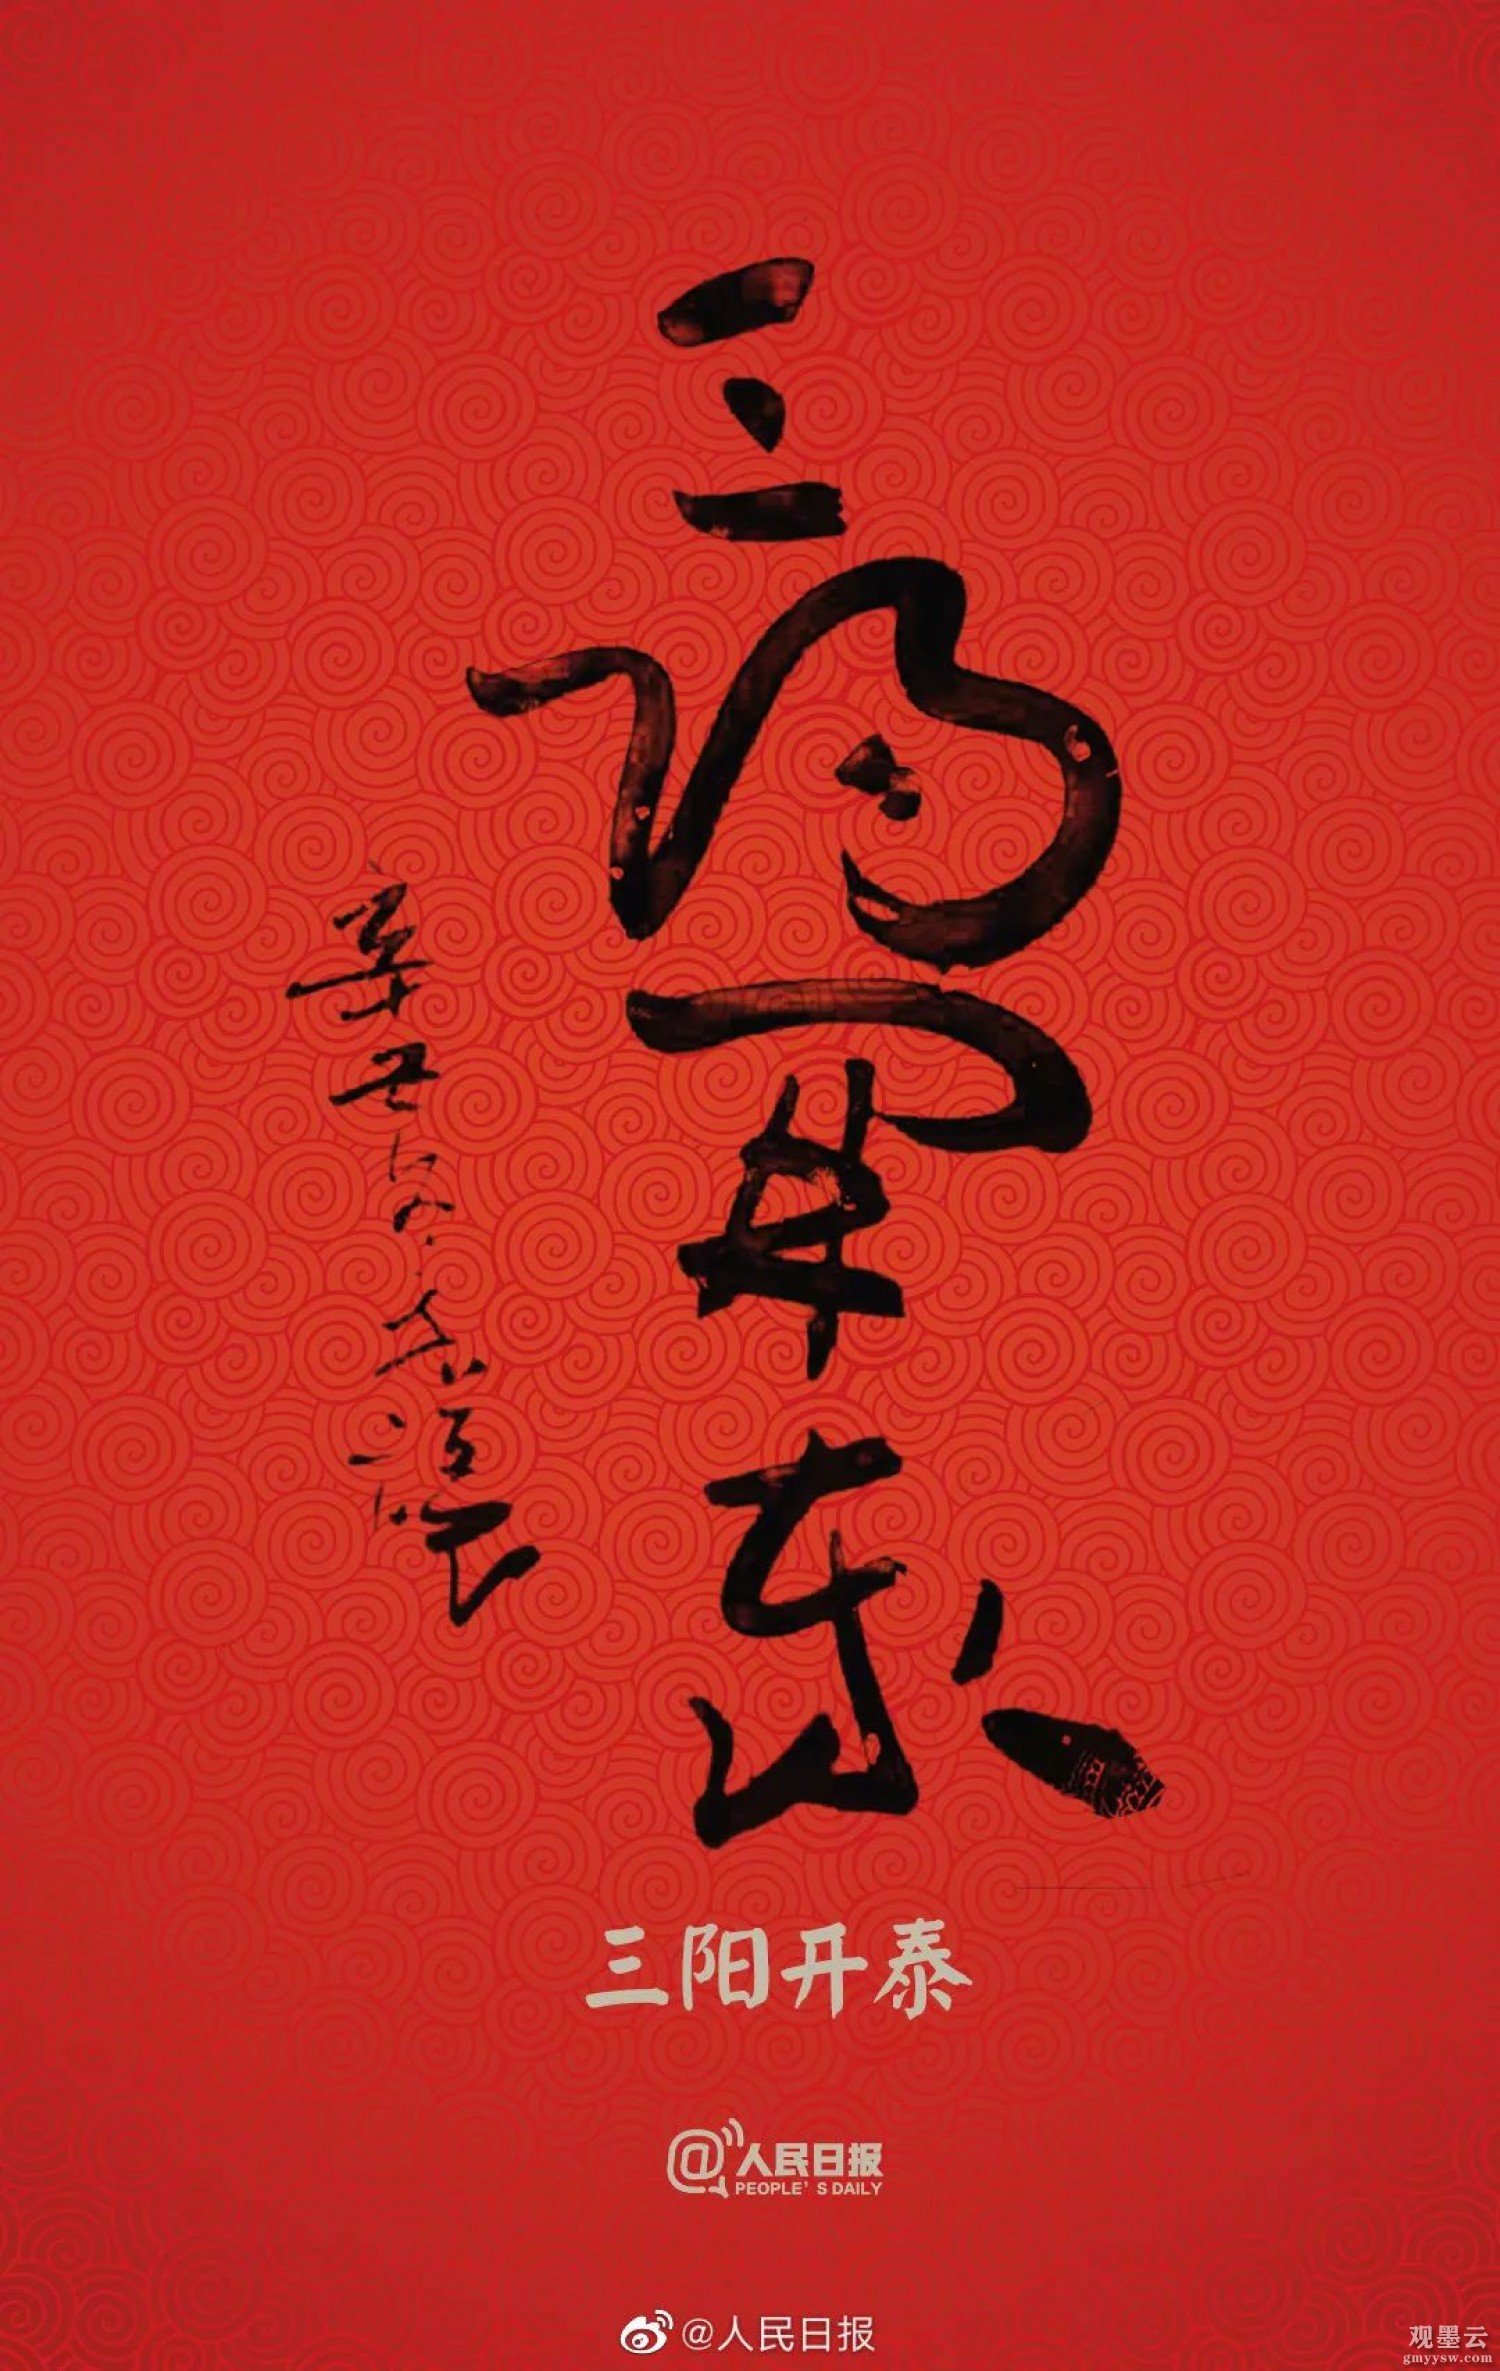 三阳开泰
辛丑
三阳开泰
@人民日报
PEOPLE'S DAILY
@人民日报
观墨云
gmyysw.com